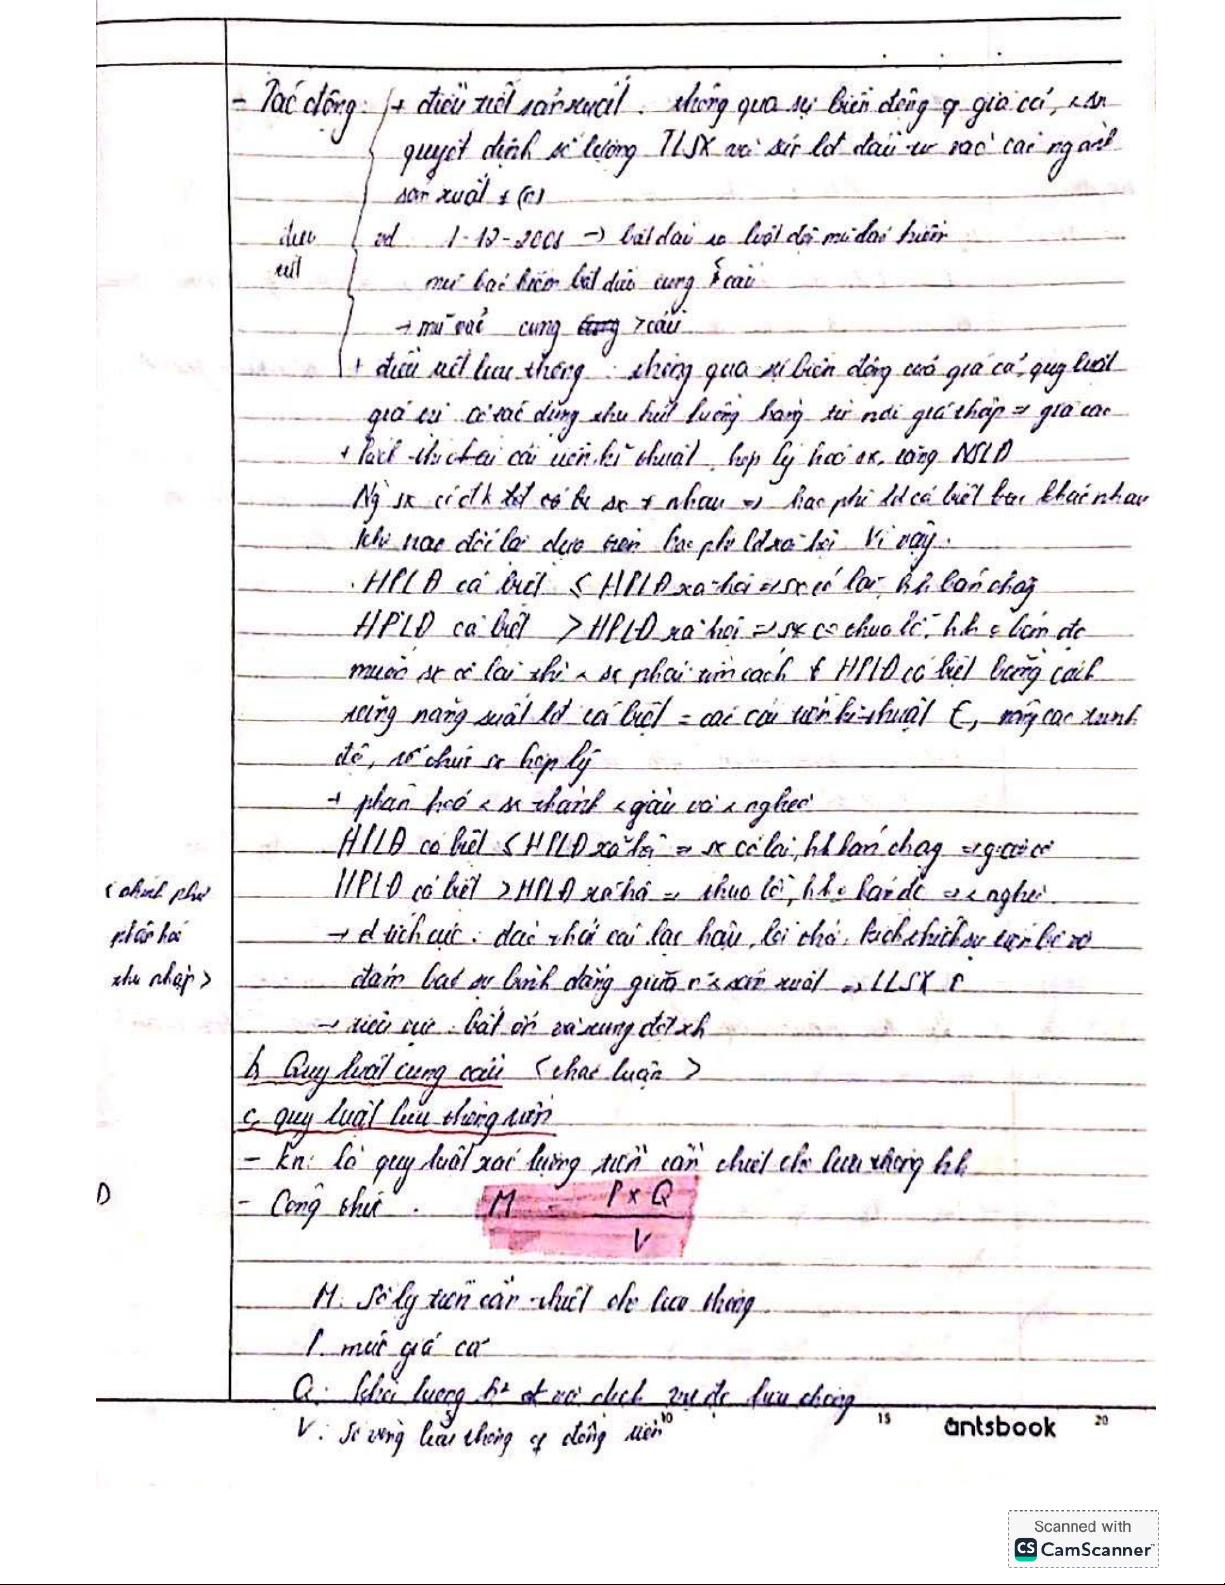 - Tác động: + điều tiết sản xuất: thông qua sự biến động of giá cả, < sx
quyết định số lượng TLSX và sức lđ đầu tư vào các ngành
sản xuất ≠
điều
tiết
vd 1-12- → bắt đầu ra luật đội mũ bảo hiểm
mũ bảo hiểm bắt đầu cung cầu
→ mũ vải cung > cầu
+ điều tiết lưu thông: thông qua sự biến động của giá cả, quy luật
giá trị có tác dụng thu hút luồng hàng từ nơi giá thấp ⇒ giá cao
+ kích thích cải tiến kĩ thuật, hợp lý hoá sx, tăng NSLĐ
Ng sx có đk ≠ nhau ⇒ hao phí lđ cá biệt khác nhau
khi trao đổi lại dựa trên hao phí lđ xã hội. Vì vậy:
. HPLĐ cá biệt < HPLĐ xã hội ⇒ sx có lãi, hh bán chạy
HPLĐ cá biệt > HPLĐ xã hội ⇒ sx thua lỗ, hh bán đc
muốn sx có lãi thì < sx phải tìm cách HPLĐ cá biệt bằng cách
tăng năng suất lđ cá biệt = các cải tiến kĩ thuật, nâng cao trình
độ, tổ chức sx hợp lý
+ phân hoá < sx thành < giàu và < nghèo
HPLĐ cá biệt < HPLĐ xã hội ⇒ sx có lãi, hh bán chạy ⇒ giàu có
HPLĐ cá biệt > HPLĐ xã hội ⇒ thua lỗ, hh bán đc ⇒ < nghèo
< chính phủ
phân hoá
thu nhập >
→ tích cực: đào thải cái lạc hậu, lỗi thời, kích thích sự tiến bộ và
đảm bảo sự bình đẳng giữa < sản xuất ⇒ LLSX
→ tiêu cực: bất ổn và xung đột xh
b, Quy luật cung cầu < thảo luận >
c, quy luật lưu thông tiền
- Kn: là quy luật xác lượng tiền cần thiết cho lưu thông hh
D
- Công thức: M = P x Q
V
M: Số lg tiền cần thiết cho lưu thông
P: mức giá cả
Q: Khối lượng h² và dịch vụ đc lưu thông
V: Số vòng lưu thông of đồng tiền
10 15 antsbook 20
Scanned with
CS CamScanner